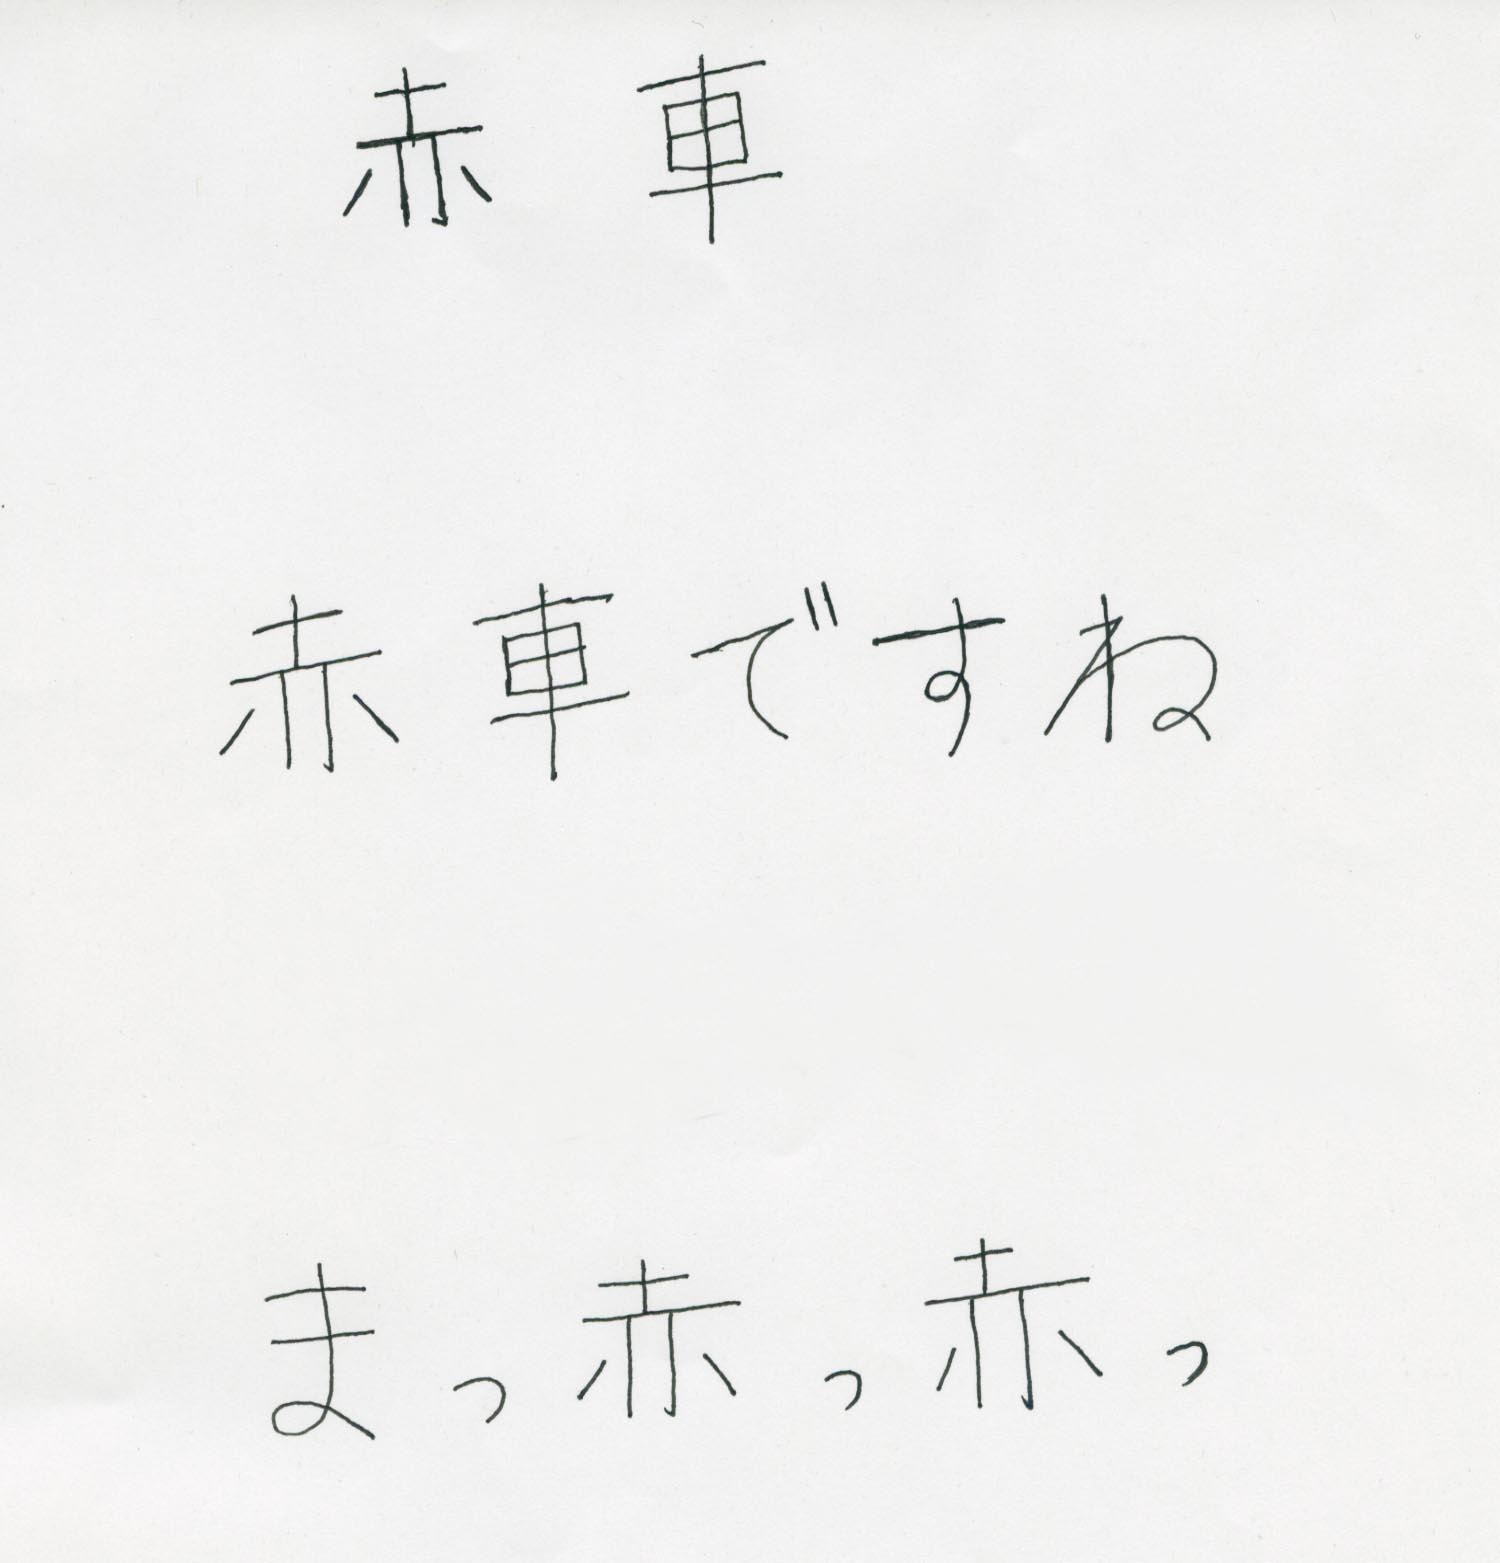 赤車
赤車ですね
まっ赤っ赤っ